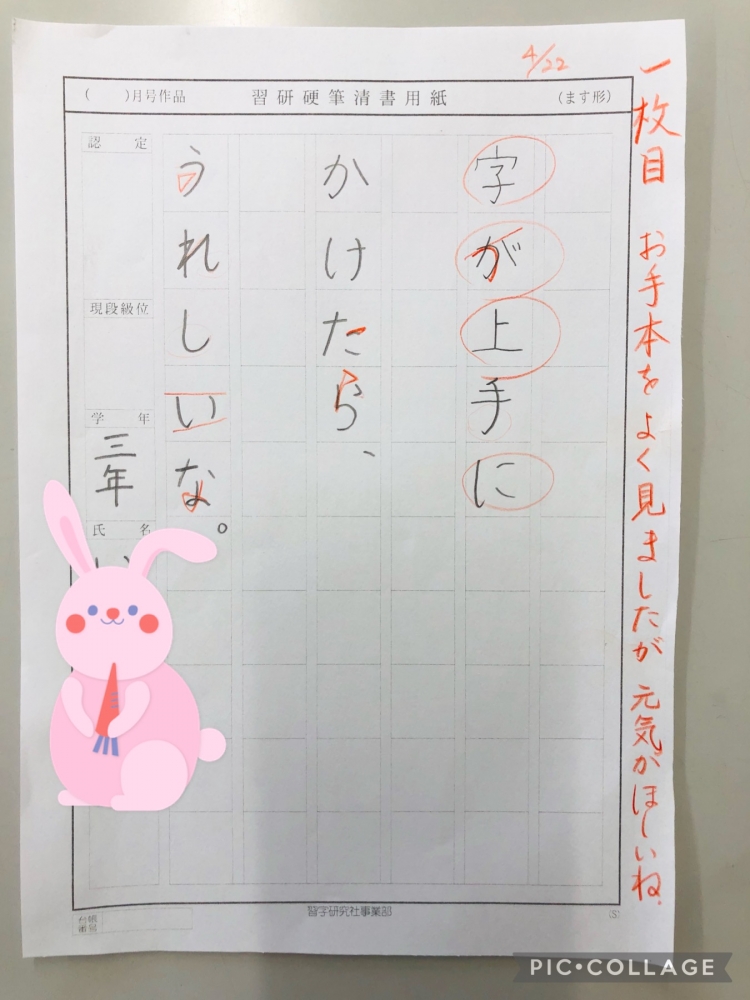 4/22
一枚目 お手本をよく見ましたが元気がほしいね
( )月号作品 習研硬筆清書用紙 (ます形)
字が上手に
かけたら、
うれしいな。
認定
現段級位
学年
三年
氏名
習字研究社事業部
(S)
PIC•COLLAGE